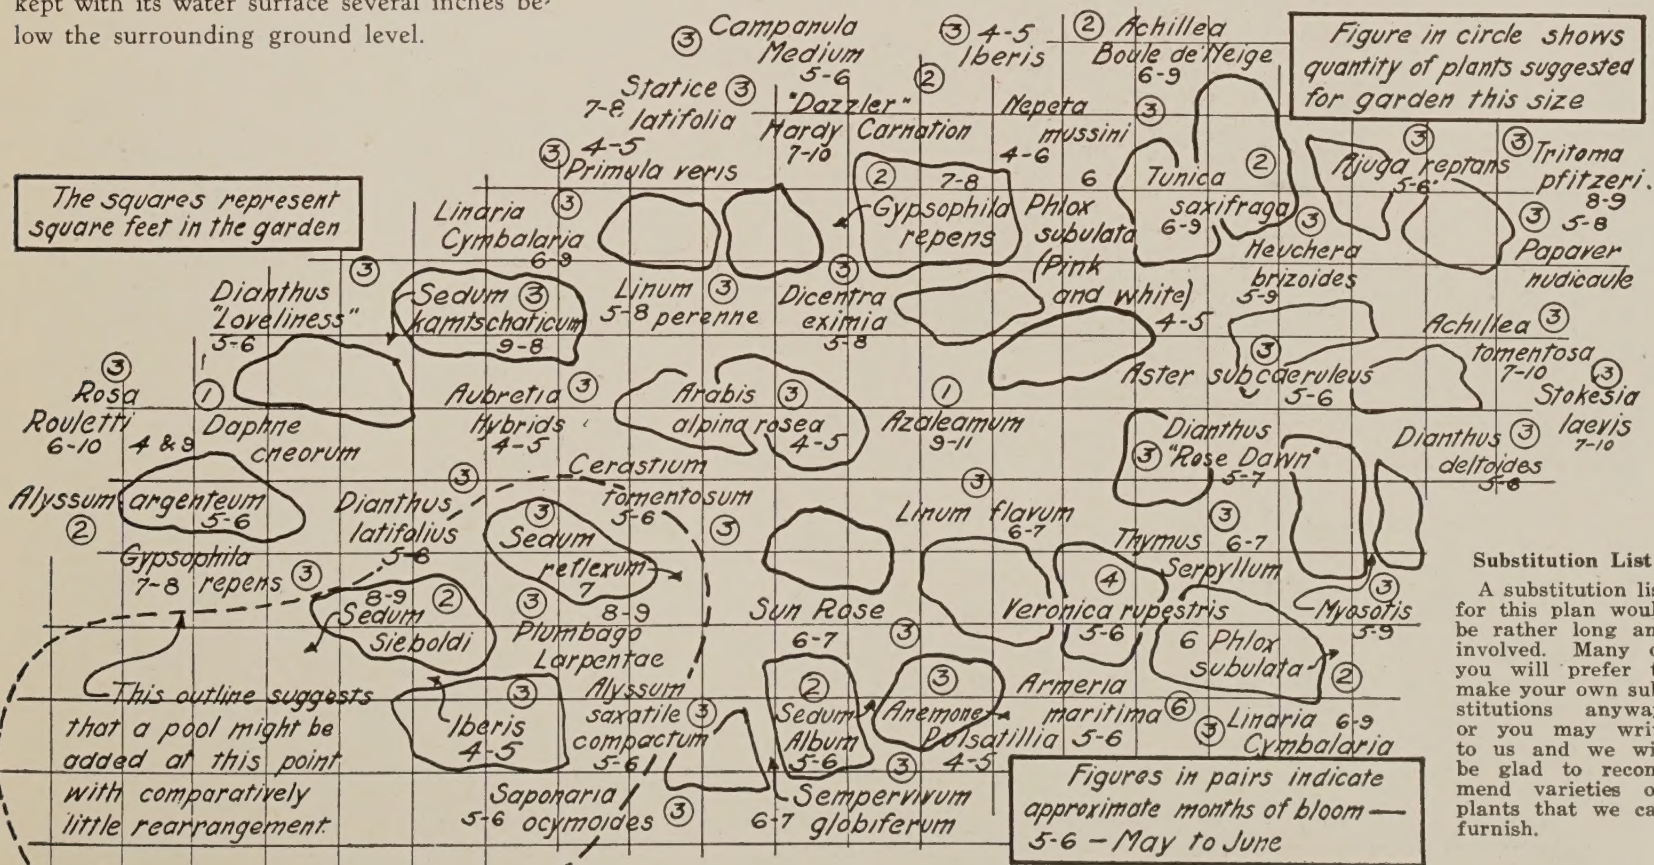 kept with its water surface several inches be-
low the surrounding ground level.
Figure in circle shows
quantity of plants suggested
for garden this size
The squares represent
square feet in the garden
③ Campanula
Medium
5-6
③ 4-5
Iberis
② Achillea
Boule de Neige
6-9
Statice ③
7-8 latifolia
"Dazzler" ②
Hardy Carnation
7-10
Nepeta
mussini
4-6
③
③ 4-5
Primula veris
② 7-8
Gypsophila
repens
6
Phlox
subulata
(Pink
and white)
4-5
Tunica ②
saxifraga
6-9
③
Ajuga reptans
5-6
③ Tritoma
pfitzeri.
8-9
Linaria ③
Cymbalaria
6-9
③
Heuchera
brizoides
5-9
③ 5-8
Papaver
nudicaule
③
Dianthus
"Loveliness"
5-6
Sedum ③
kamtschaticum
9-8
Linum ③
5-8 perenne
③
Dicentra
eximia
5-8
Achillea ③
tomentosa
7-10
③
Rosa
Rouletti
6-10
①
Daphne
cneorum
4 & 9
Aubretia ③
Hybrids
4-5
Arabis ③
alpina rosea
4-5
①
Azaleamum
9-11
③
Aster subcaeruleus
5-6
③
Stokesia
laevis
7-10
Dianthus
③ "Rose Dawn"
5-7
Dianthus ③
deltoides
5-8
Alyssum argenteum
② 5-6
③
Dianthus
latifolius
5-6
Cerastium
tomentosum
5-6 ③
③
Linum flavum
6-7
③
Thymus 6-7
Serpyllum
Gypsophila
7-8 repens ③
③
Sedum
reflexum
7
8-9 ②
Sedum
Sieboldi
③ 8-9
Plumbago
Larpentae
Sun Rose
6-7 ③
④
Veronica rupestris
5-6
③
Myosotis
5-9
6 Phlox
subulata
②
This outline suggests
that a pool might be
added at this point
with comparatively
little rearrangement.
③
Iberis
4-5
Alyssum
saxatile ③
compactum
5-6
②
Sedum
Album
5-6
③
Anemone
Pulsatillia
4-5
Armeria
maritima ⑥
5-6
③ Linaria 6-9
Cymbalaria
Saponaria
5-6 ocymoides ③
③
Sempervivum
6-7 globiferum
Figures in pairs indicate
approximate months of bloom —
5-6 — May to June
Substitution List
A substitution lis
for this plan woul
be rather long an
involved. Many o
you will prefer t
make your own sub
stitutions anyway
or you may writ
to us and we wil
be glad to recom
mend varieties o
plants that we ca
furnish.